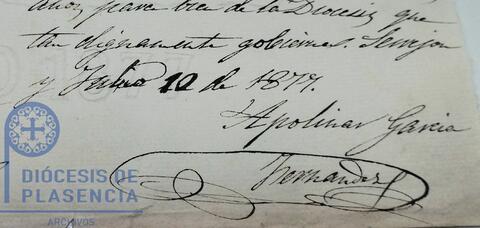 años, para bien de la Diocesis que
tan dignamente gobierna. Serrejon
y Julio 12 de 1877.
Apolinar Garcia
Hernandez
DIÓCESIS DE
PLASENCIA
ARCHIVOS